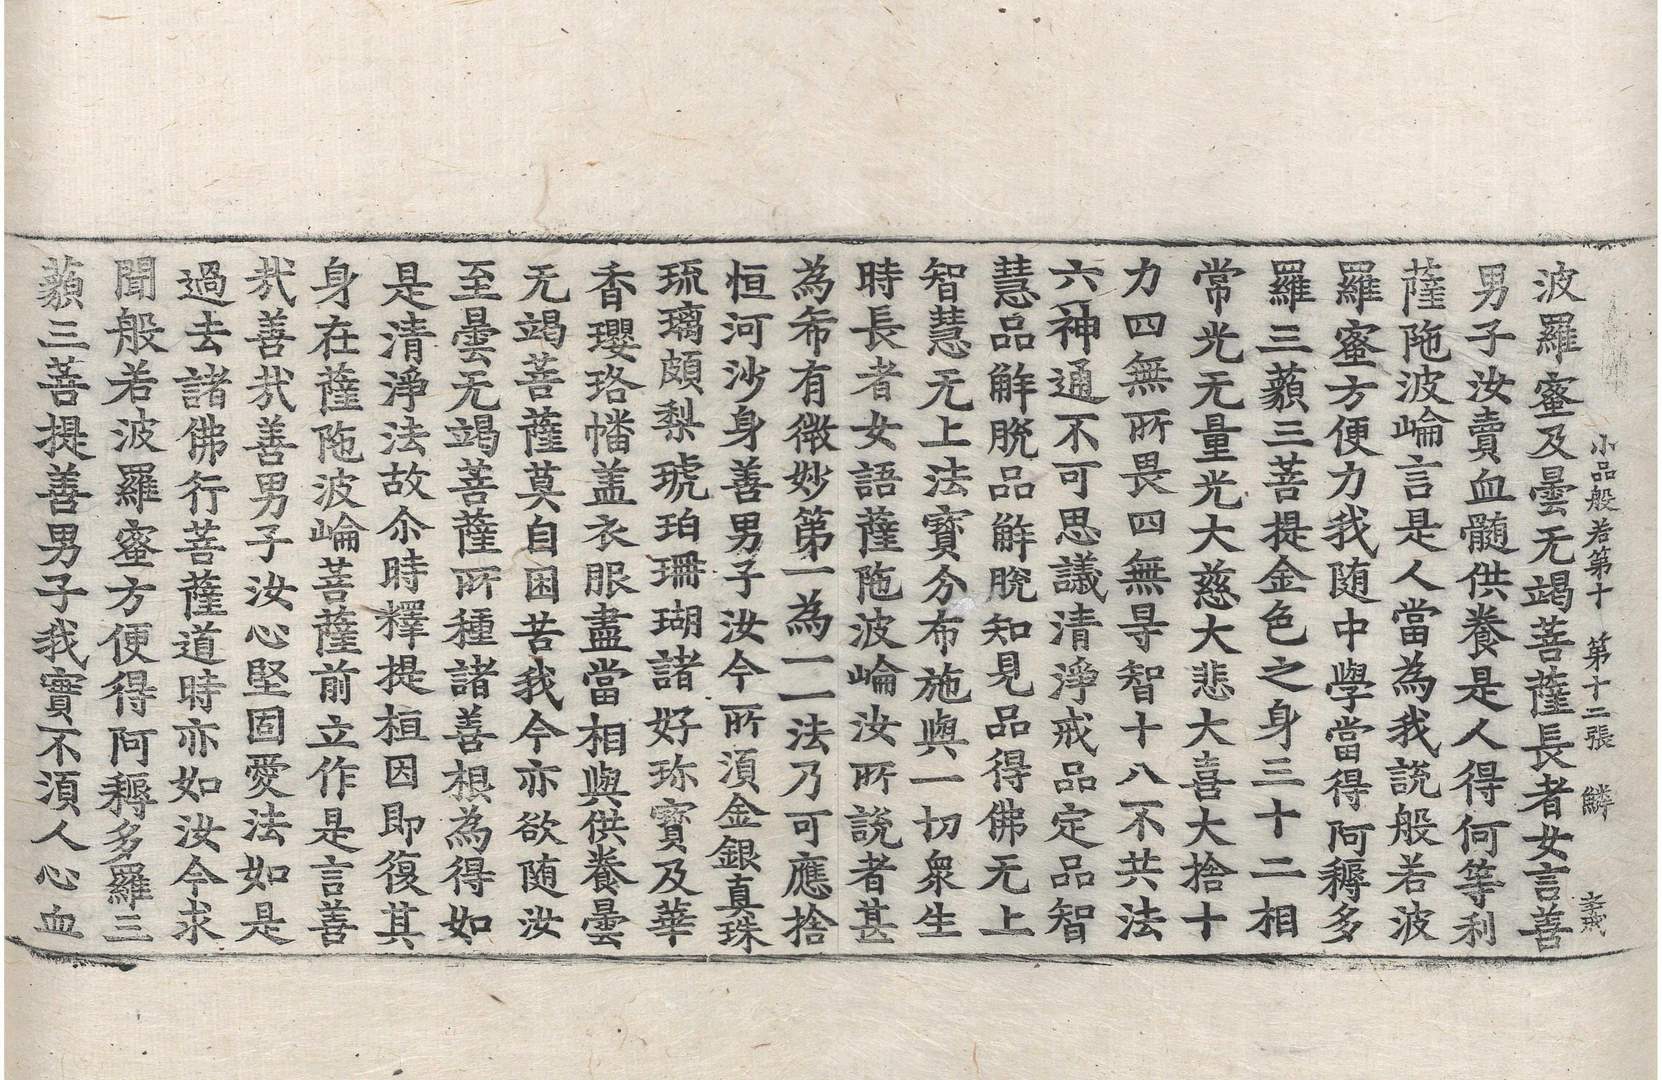 小品般若第十　第十二張　鱗
波羅蜜及曇无竭菩薩長者女言善
男子汝賣血髓供養是人得何等利
薩陁波崘言是人當為我説般若波
羅蜜方便力我随中學當得阿耨多
羅三藐三菩提金色之身三十二相
常光无量光大慈大悲大喜大捨十
力四無所畏四無㝵智十八不共法
六神通不可思議清淨戒品定品智
慧品解脫品解脫知見品得佛无上
智慧无上法寳分布施與一切衆生
時長者女語薩陁波崘汝所說者甚
為希有微妙第一為一一法乃可應捨
恒河沙身善男子汝今所湏金銀真珠
琉璃頗梨琥珀珊瑚諸好珎寳及華
香瓔珞幡盖衣服盡當相與供養曇
无竭菩薩莫自困苦我今亦欲随汝
至曇无竭菩薩所種諸善根為得如
是清淨法故尒時釋提桓因即復其
身在薩陁波崘菩薩前立作是言善
㢤善㢤善男子汝心堅固愛法如是
過去諸佛行菩薩道時亦如汝今求
聞般若波羅蜜方便得阿耨多羅三
藐三菩提善男子我實不湏人心血